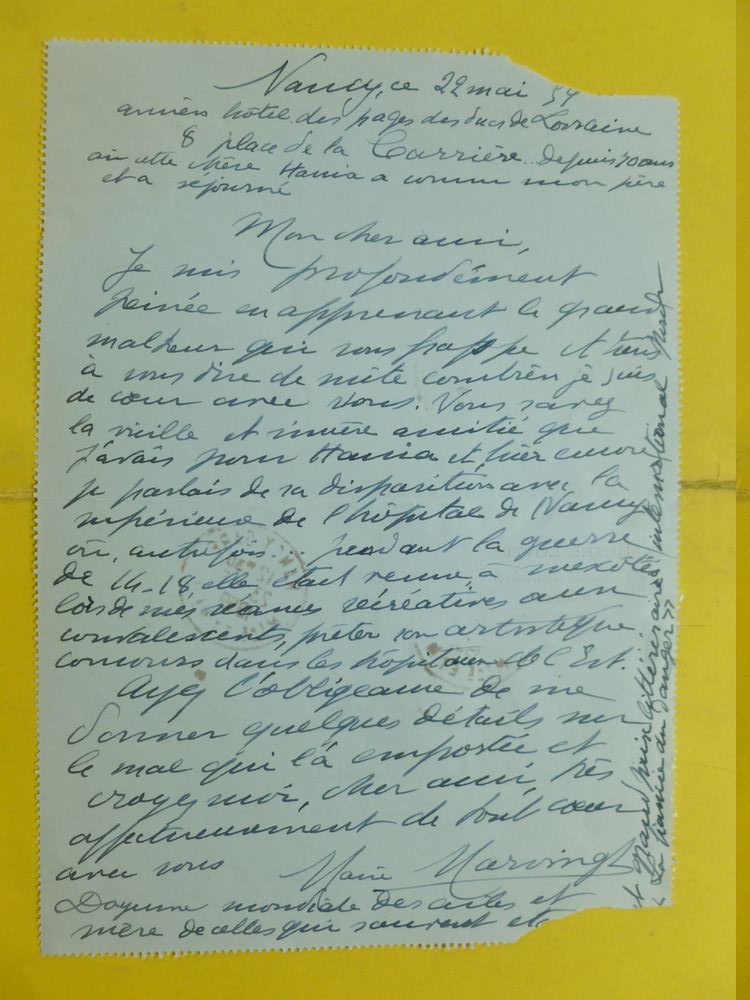 Nancy, ce 22 mai 54
ancien hôtel des pages des ducs de Lorraine
8 place de la Carrière.. depuis 70 ans
où cette chère Hania a connu mon père
et a séjourné
Mon cher ami,
Je suis profondément
peinée en apprenant le grand
malheur qui vous frappe et tiens
à vous dire de suite combien je suis
de cœur avec vous. Vous savez
la vieille et sincère amitié que
j'avais pour Hania et hier encore
je parlais de sa disparition avec la
supérieure de l'hôpital de Nancy
où, autrefois... pendant la guerre
de 14-18, elle était venue, à
lors de mes séances récréatives aux
convalescents, prêter son artistique
concours dans les hôpitaux de l'Est.
Ayez l'obligeance de me
donner quelques détails sur
le mal qui l'a emportée et
croyez moi, cher ami, très
affectueusement de tout cœur
avec vous
Marie Marvingt
Doyenne mondiale des ailes et
mère de celles qui sauvent et
et grand prix littéraire international
« La fiancée du danger »